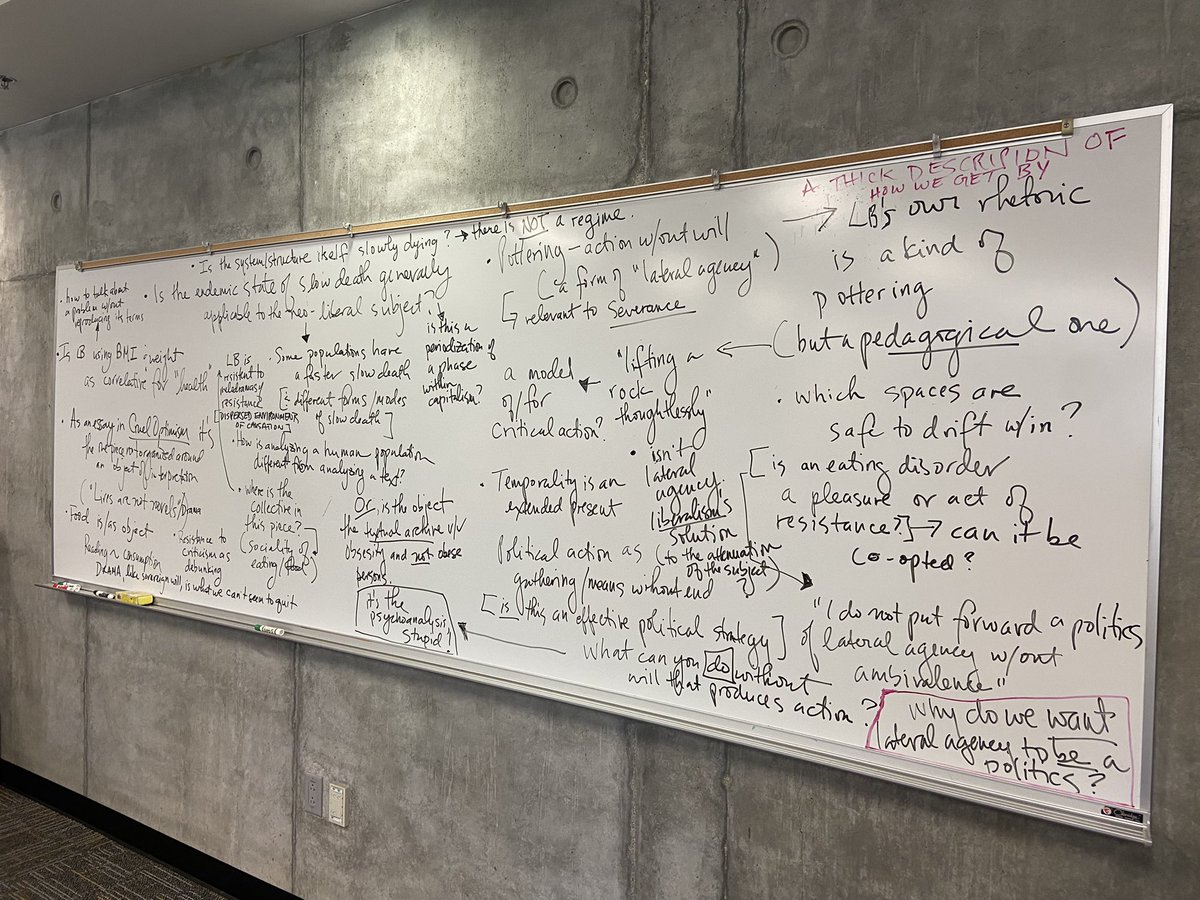 • how to talk about
a problem w/out
reproducing its terms
• Is LB using BMI & weight
as correlative for "health"
• As an essay in Cruel Optimism it's
the one piece not organized around
an object of interpretation
("Lives are not novels/Drama
• Food is/as object
Reading ~ consumption
DRAMA, like sovereign will, is what we can't seem to quit
• Resistance to
criticism as
debunking
• Is the system/structure itself slowly dying? → there is NOT a regime.
• Is the endemic state of slow death generally
applicable to the neo-liberal subject?
LB is
resistent to
melodramas of
resistance
[DISPERSED ENVIRONMENT
OF CAUSATION]
• where is the
collective in
this piece?
(sociality of
eating/food)
• Some populations have
a faster slow death
[& different forms/modes
of slow death]
• How is analyzing a human population
different from analyzing a text?
Or, is the object
the textual archive
obsesity and not obese
persons.
it's the
psychoanalysis,
stupid!
is this a
periodization of
a phase
within
capitalism?
• Pottering – action w/out will
(a form of "lateral agency")
[↳ relevant to Severance
a model
of/for
critical action?
"lifting a
rock
thoughtlessly"
• isn't
lateral
agency
liberalism's
solution
(to the attenuation
of the subject)
?
• Temporality is an
extended present
Political action as
gathering/means without end
[is this an effective political strategy]
what can you do without
will that produces action?
A THICK DESCRIPION OF
HOW WE GET BY
→ LB's own rhetoric
is a kind of
pottering
(but a pedagogical one)
• which spaces are
safe to drift w/in?
[is an eating disorder
a pleasure or act of
resistance?] → can it be
co-opted?
"I do not put forward a politics
of lateral agency w/out
ambivalence"
why do we want
lateral agency to be a
politics?